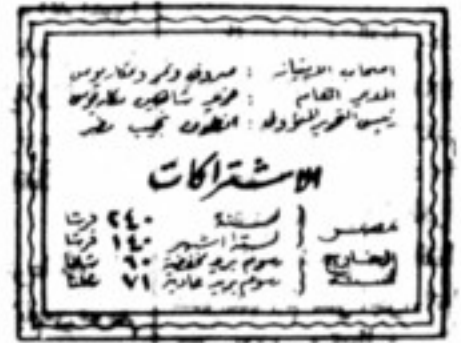 اصحاب الامتياز : صروف ونمر ومكاريوس
المدير العام : شاهين مكاريوس
رئيس التحرير المسئول : انطون نجيب مطر
الاشتراكات
مصر { لسنة ٢٤٠ قرشا
لستة اشهر ١٤٠ قرشا
الخارج لسنة { رسوم بريد مخفضة ٦٠ شلنا
رسوم بريد عادية ٧١ شلنا